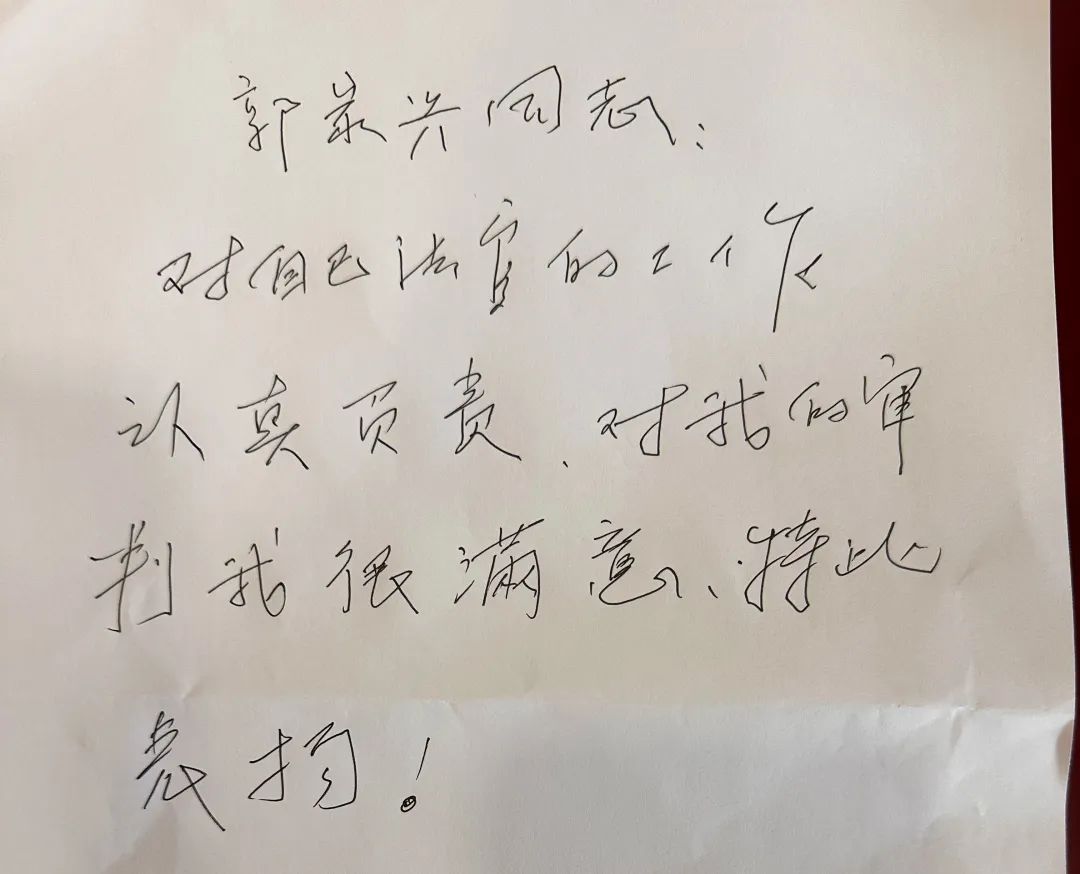 郭崇兴同志:
对自己法官的工作
认真负责、对我的审
判我很满意、特此
表扬!